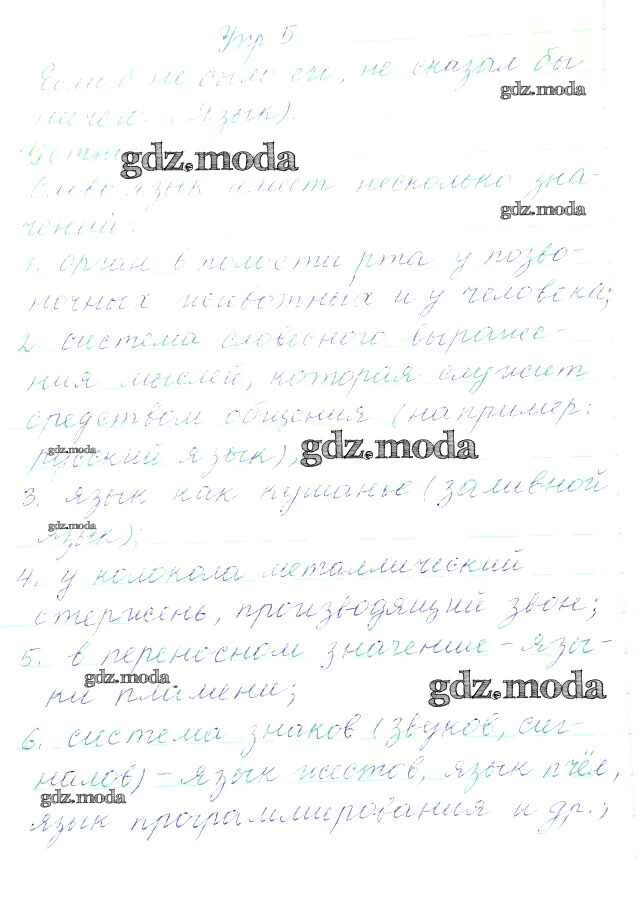 Упр 5
Если б не было его, не сказал бы
gdz.moda
ничего. (Язык).
Устн
gdz.moda
Слово язык имеет несколько зна-
gdz.moda
чений:
1. орган в полости рта у позво-
ночных животных и у человека;
2. система словесного выраже-
ния мыслей, которая служит
средством общения (например:
gdz.moda
русский язык);
gdz.moda
3. язык как кушанье (заливной
gdz.moda
язык);
4. у колокола металлический
стержень, производящий звон;
5. в переносном значение - язы-
gdz.moda
ки пламени;
gdz.moda
6. система знаков (звуков, сиг-
налов) - язык жестов, язык пчёл,
gdz.moda
язык программирования и др.;